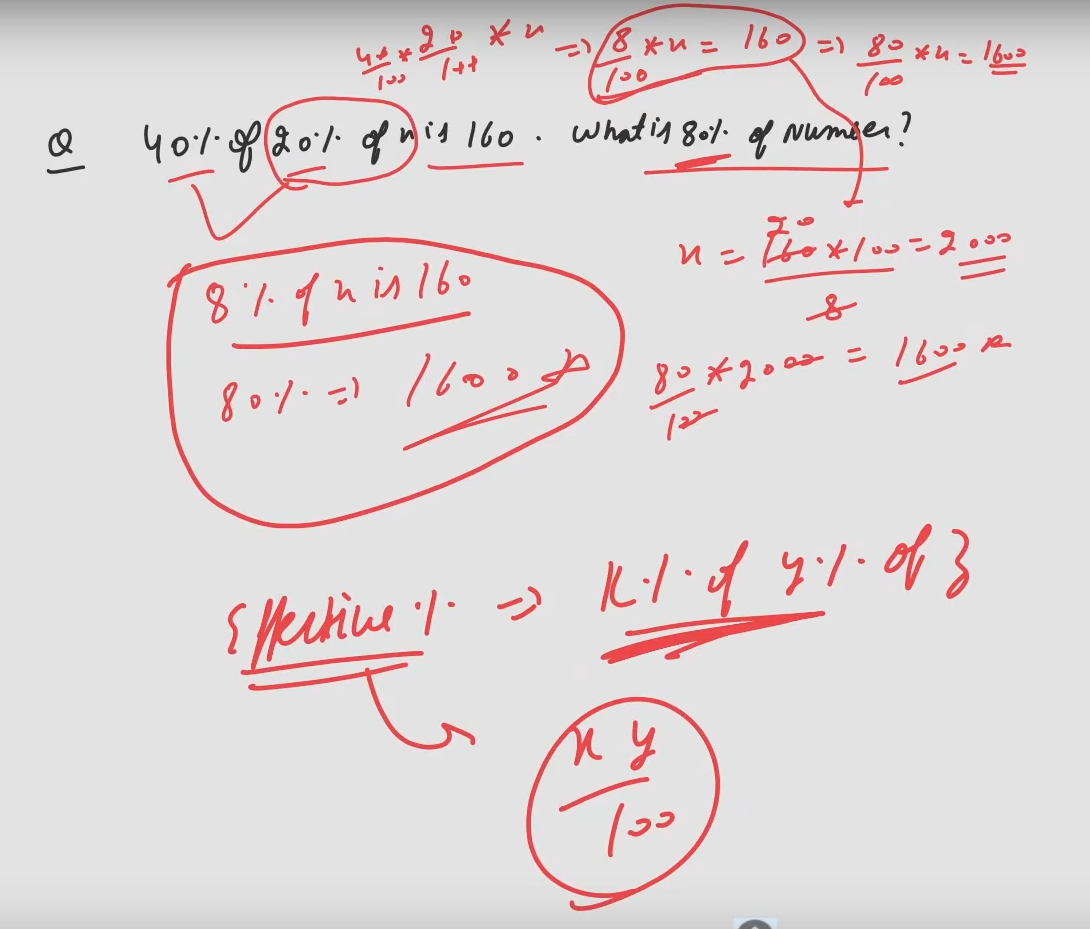 40/100 * 20/100 * x => 8/100 * x = 160 => 80/100 * x = 1600
Q 40% of 20% of x is 160. What is 80% of Number?
x = 160*100/8 = 2000
20
8% of x is 160
80% => 1600
80/100 * 2000 = 1600
{Effective % => x% of y% of}
xy/100